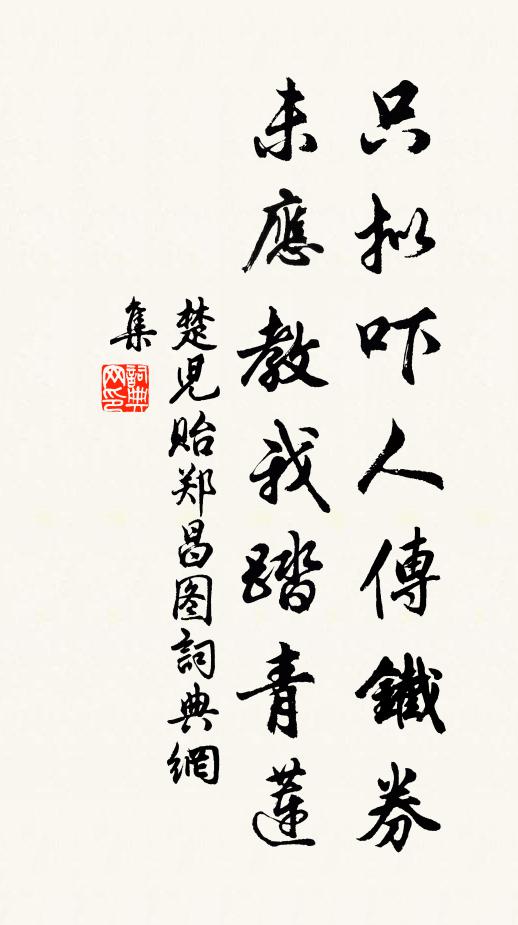 只拟吓人傳鐵券
未應教我踏青蓮
楚児贻郑昌图詞典網
集
詞典网印